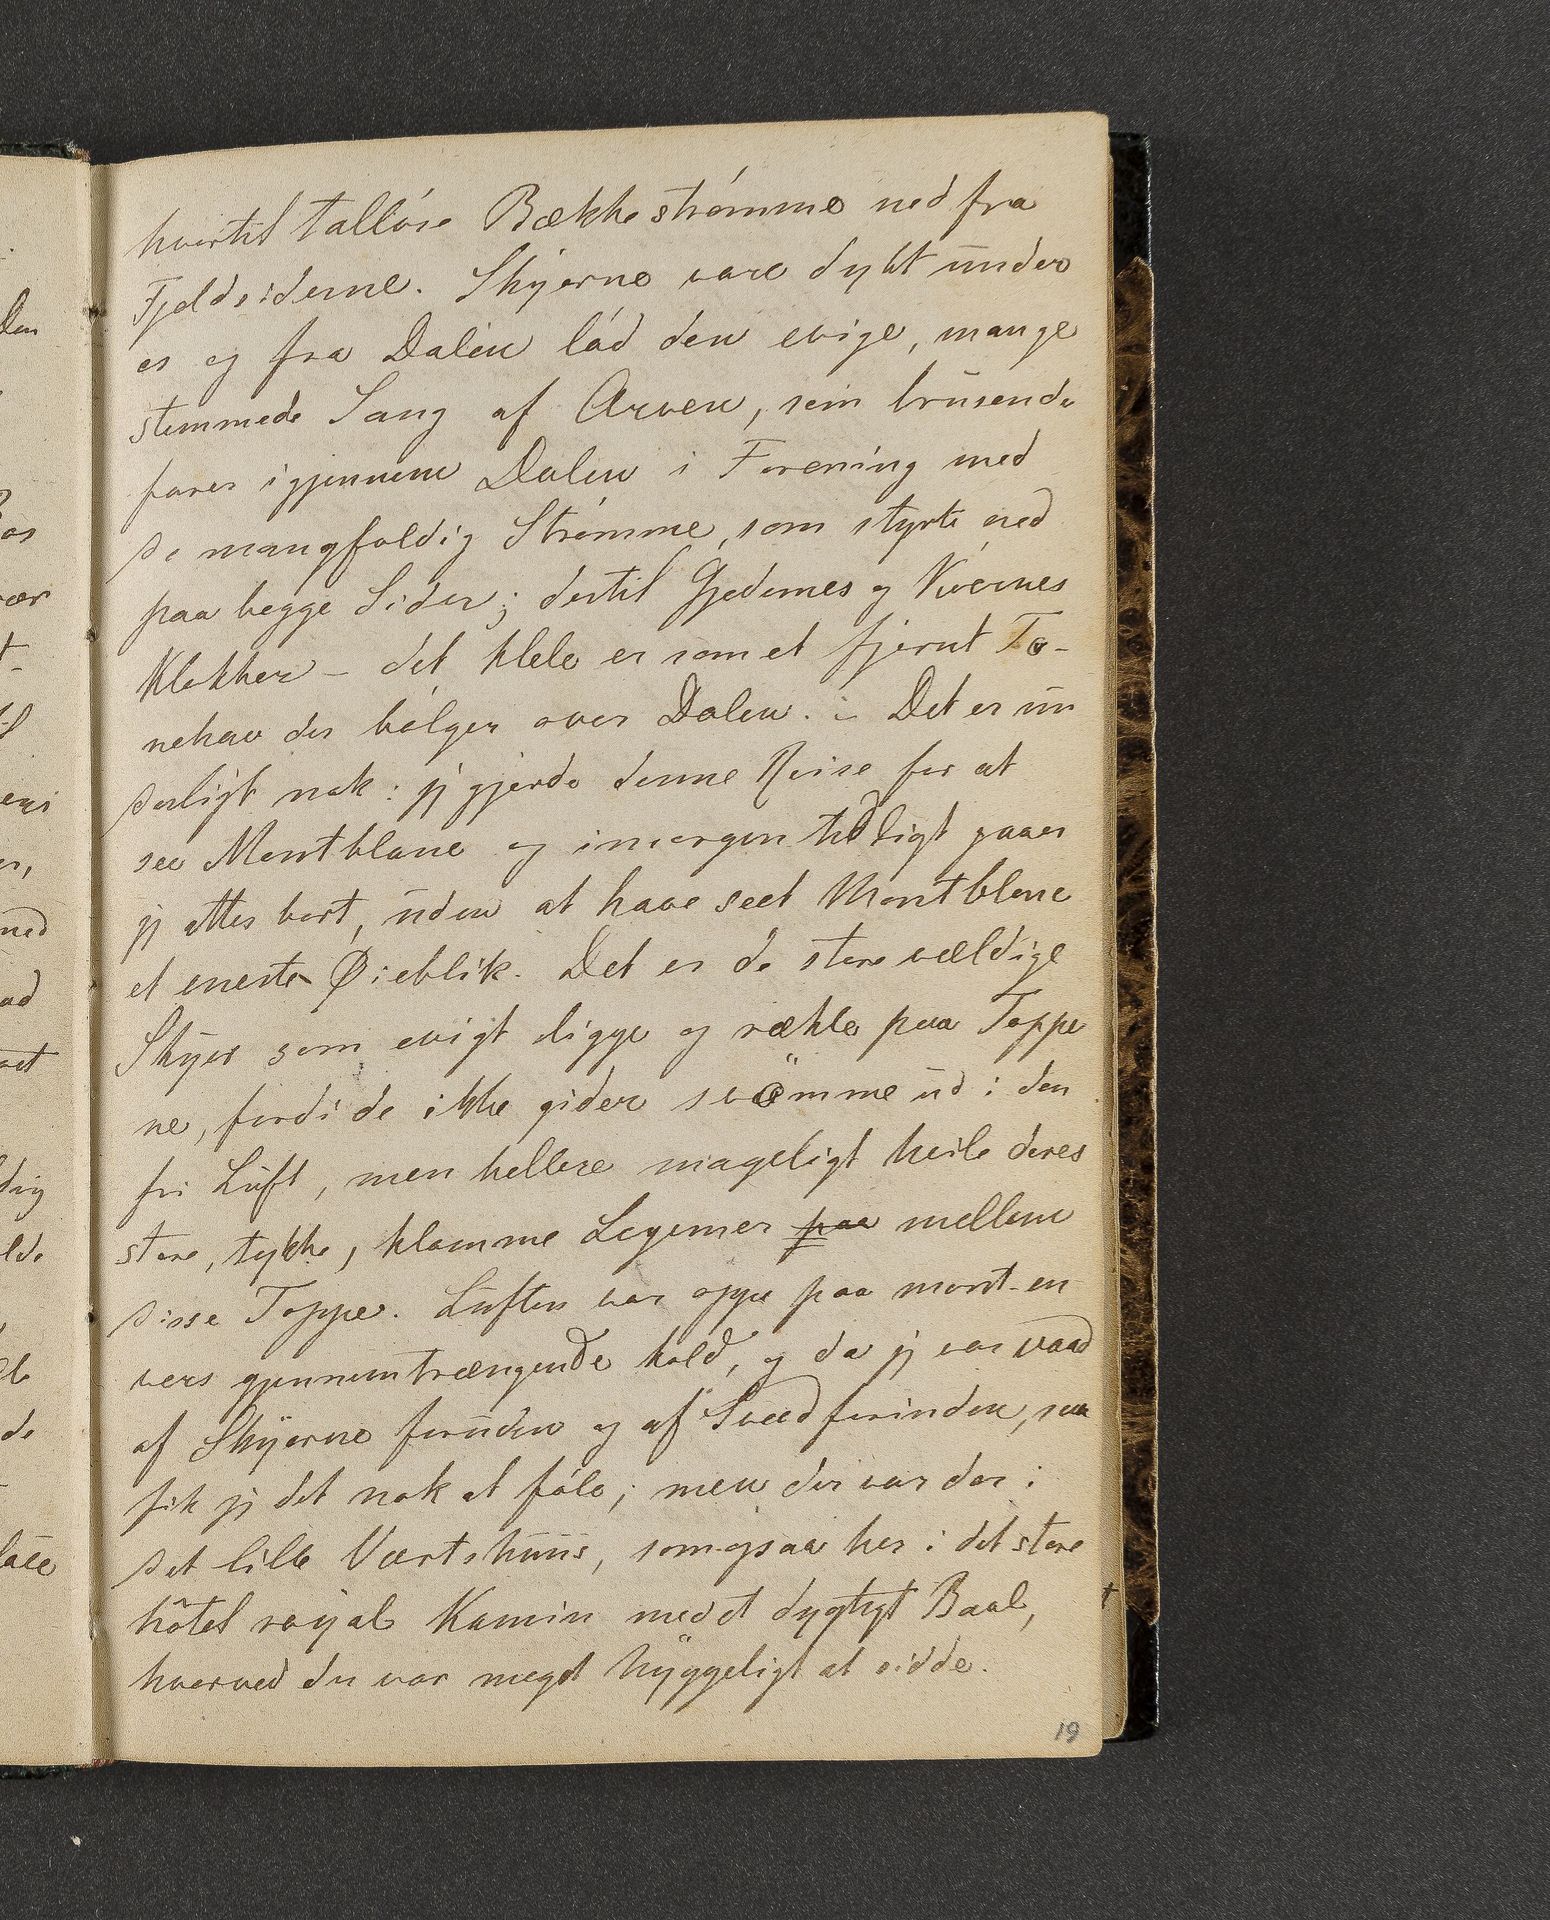 hvortil talløse Bækkestrømme ned fra
Fjeldsiderne. Skyerne vare dybt under
os og fra Dalen lød den evige, mange
stemmede Sang af Arven, som brusende
farer igjennem Dalen i Forening med
de mangfoldig Strømme, som styrte ned
paa begge Sider; dertil Gjedernes og Køernes
Klokker – det hele er som et fjernt To-
nehav der bølger over Dalen. – Det er un
derligt nok: jeg gjorde denne Reise for at
see Montblanc og imorgen tidligt gaaer
jeg atter bort, uden at have seet Montblanc
et eneste Øieblik. Det er de store vældige
Skyer som evigt ligge og rækle paa Toppe
ne, fordi de ikke gider svömme ud i den
fri Luft, men hellere mageligt hvile deres
store, tykke, klamme Legemer paa mellem
disse Toppe. Luften var oppe paa mont-en
vers gjennemtrængende kold, og da jeg var vaad
af Skyerne foruden og af Sved forinden, saa
fik jeg det nok at føle; men der var der i
det lille Værtshuus, som ogsaa her i det store
hôtel royal Kamin med et dygtigt Baal,
hvorved der var meget hyggeligt at sidde.
19